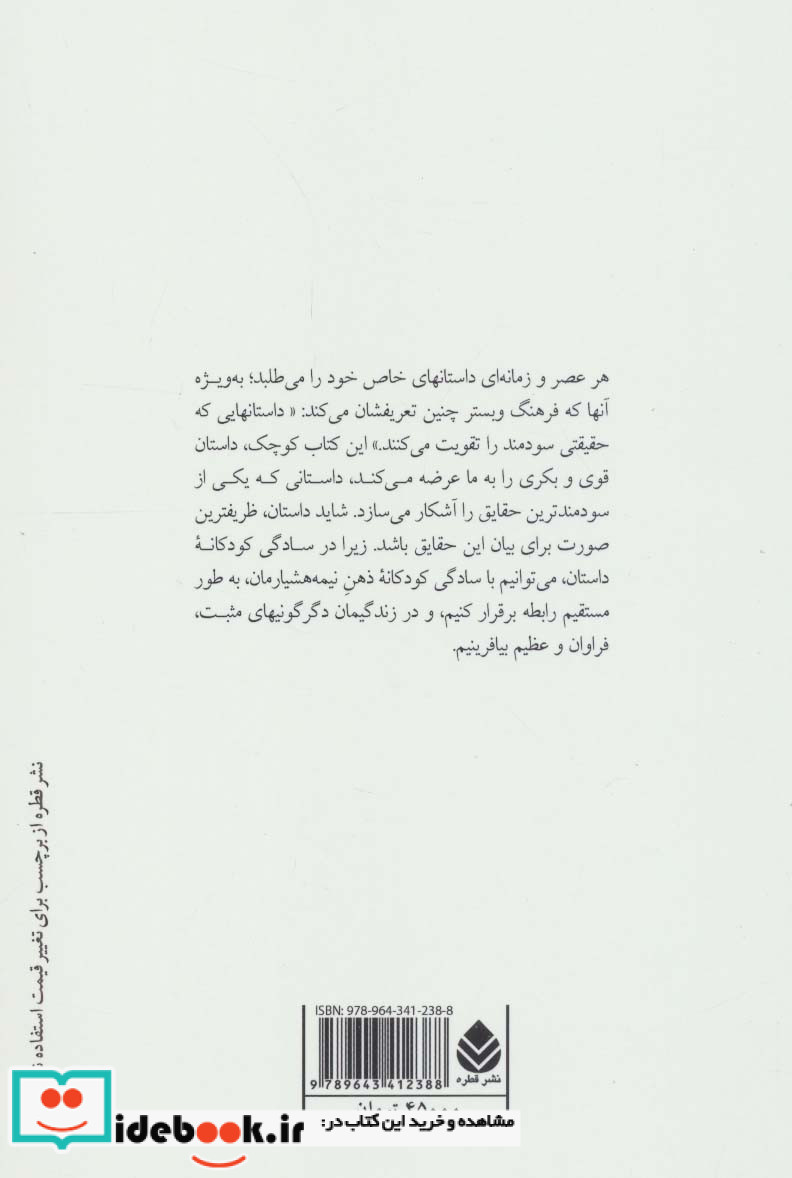 هر عصر و زمانه‌ای داستانهای خاص خود را می‌طلبد؛ به‌ویژه
آنها که فرهنگ وبستر چنین تعریفشان می‌کند: « داستانهایی که
حقیقتی سودمند را تقویت می‌کنند.» این کتاب کوچک، داستان
قوی و بکری را به ما عرضه می‌کند، داستانی که یکی از
سودمندترین حقایق را آشکار می‌سازد. شاید داستان، ظریفترین
صورت برای بیان این حقایق باشد. زیرا در سادگی کودکانهٔ
داستان، می‌توانیم با سادگی کودکانهٔ ذهنِ نیمه‌هشیارمان، به طور
مستقیم رابطه برقرار کنیم، و در زندگیمان دگرگونیهای مثبت،
فراوان و عظیم بیافرینیم.
نشر قطره از برچسب برای تغییر قیمت استفاده
ISBN: 978-964-341-238-8
9 789643 412388
نشر قطره
تومان
مشاهده و خرید این کتاب در:
idebook.ir